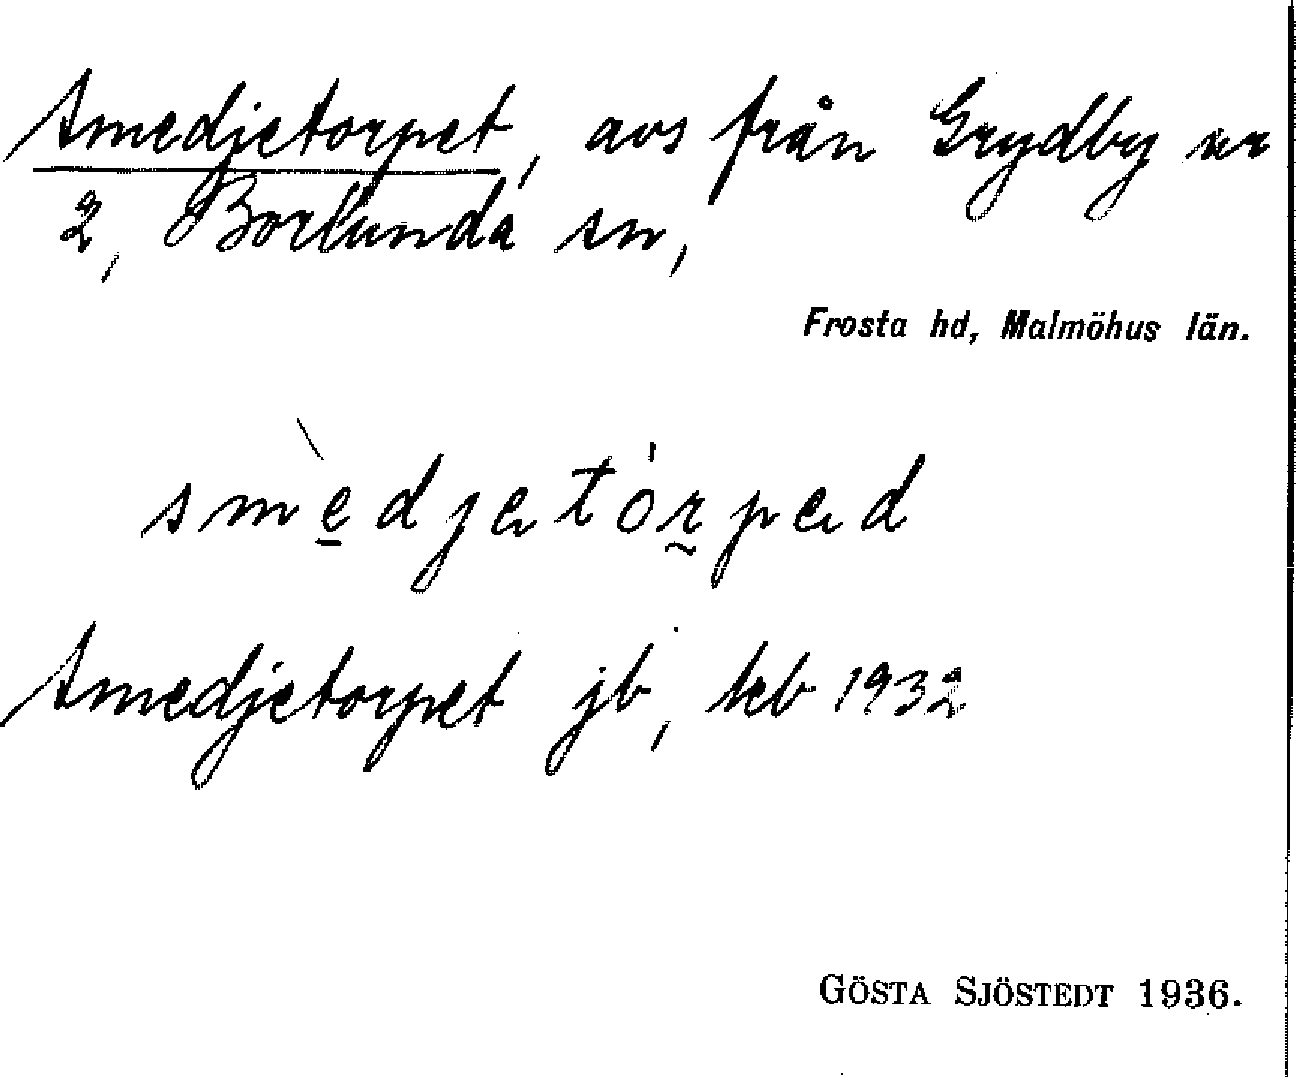 Smedjetorpet, avs från Grydby nr
2, Borlunda sn,
Frosta hd, Malmöhus län.
smèdjetórped
Smedjetorpet jb, kb 1932
GÖSTA SJÖSTEDT 1936.